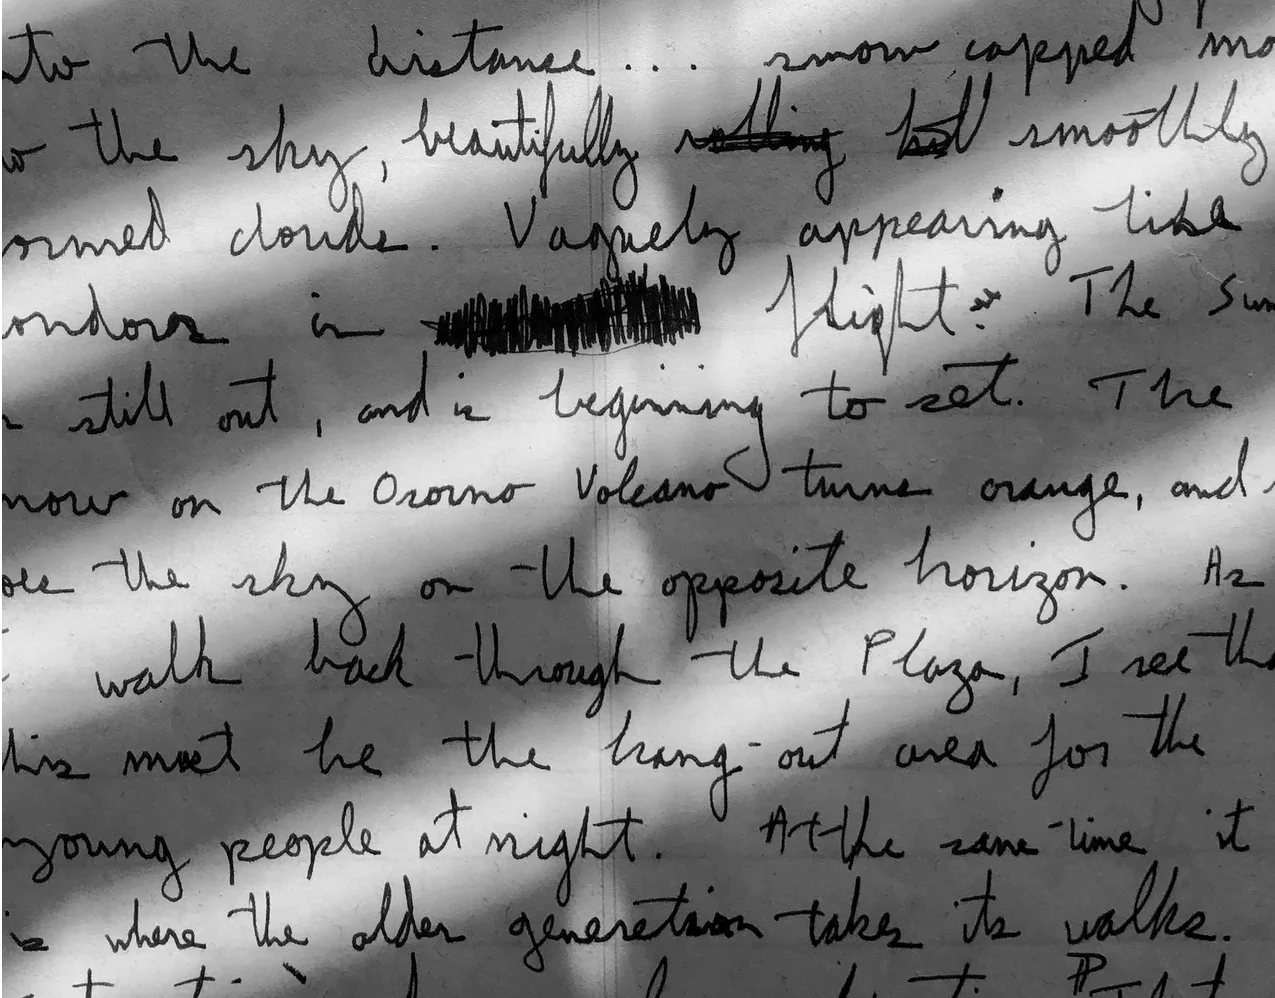 to the distance... snow capped mo
w the sky, beautifully rolling but smoothly
ormed clouds. Vaguely appearing like
ondors in flight. The Sun
still out, and is beginning to set. The
now on the Osorno Volcano turns orange, and
oes the sky on the opposite horizon. As
walk back through the Plaza, I see tha
his must be the hang-out area for the
young people at night. At the same time it
is where the older generation takes its walks.